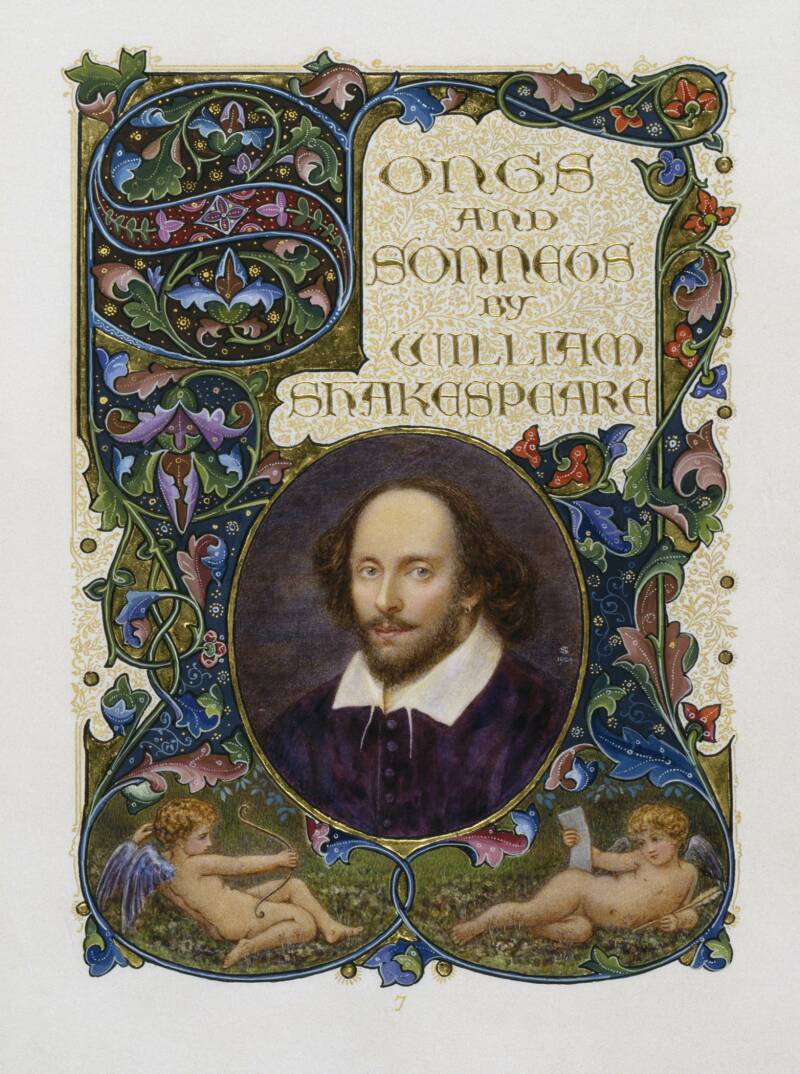 SONGS
AND
SONNETS
BY
WILLIAM
SHAKESPEARE
S
7